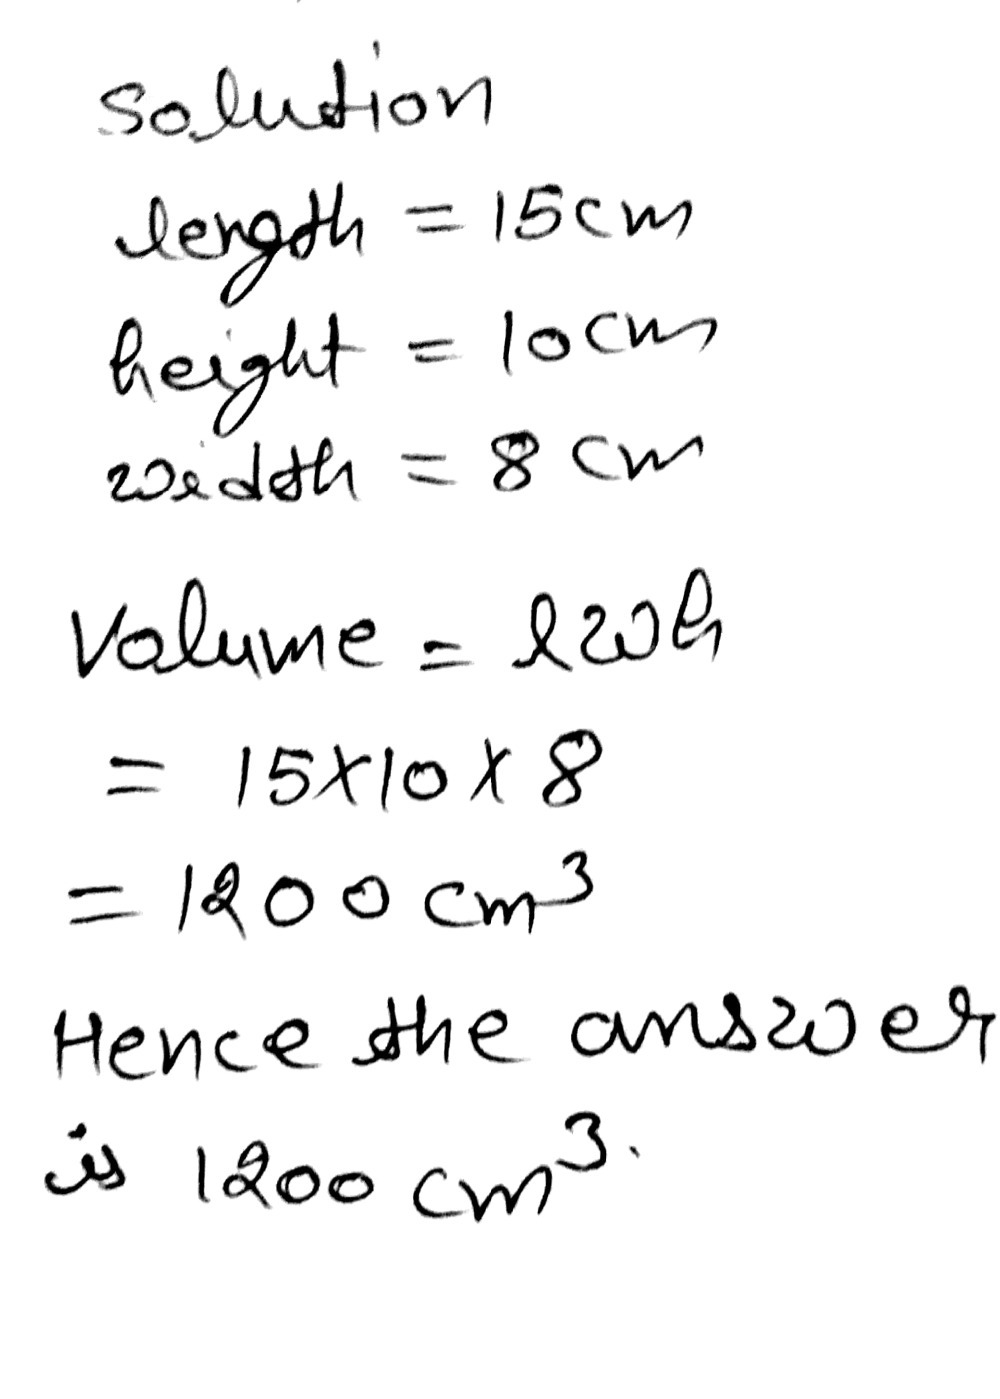 Solution
length = 15cm
height = 10cm
width = 8 cm
Volume = lwh
= 15×10×8
= 1200 cm³
Hence the answer
is 1200 cm³.